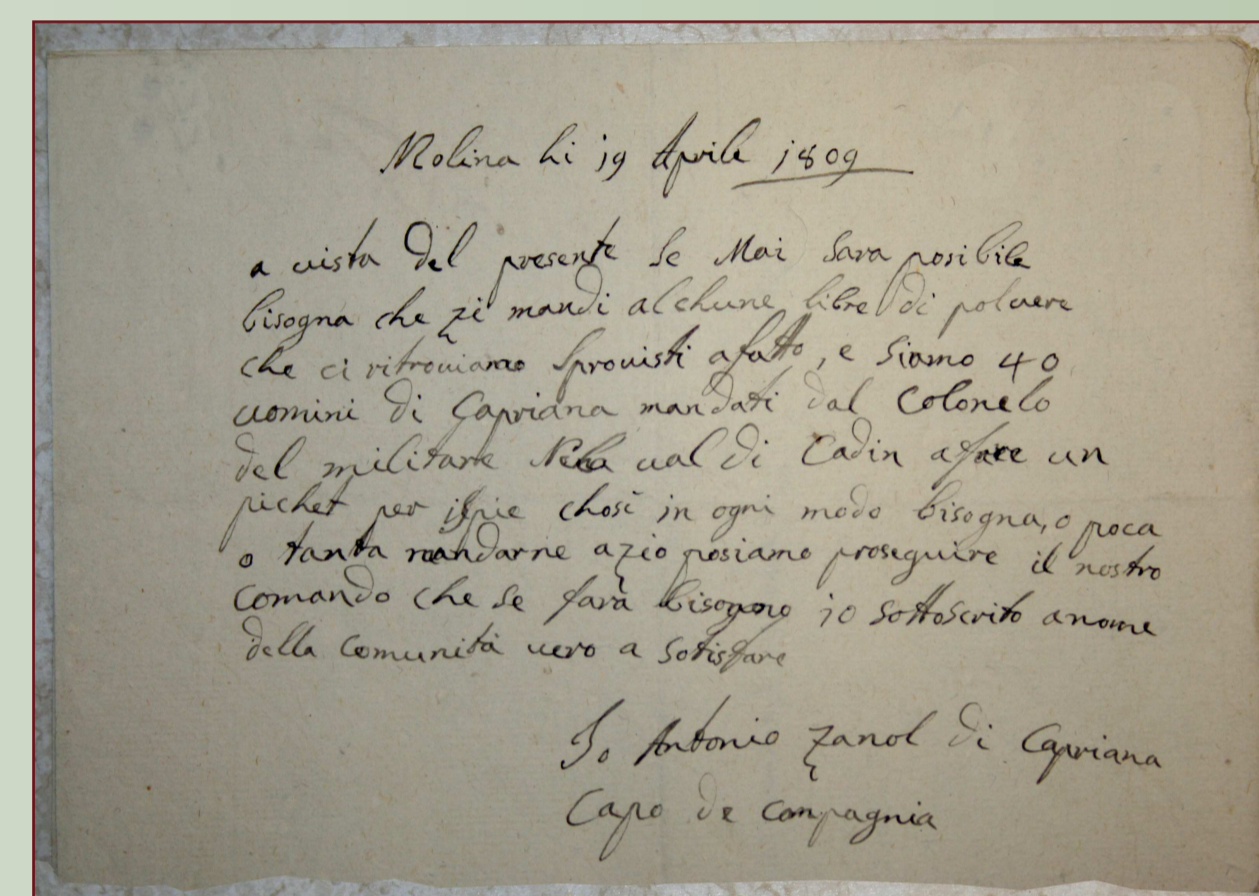 Molina li 19 Aprile 1809
a vista del presente se Mai sara posibile
bisogna che zi mandi alchune libre di polvere
che ci ritroviamo sprovisti afatto, e siamo 40
uomini di Capriana mandati dal Colonelo
del militare Nela val di Cadin afare un
pichet per ilpie chosi in ogni modo bisogna, o poca
o tanta mandarne azio posiamo proseguire il nostro
comando che se fara bisogno io sottoscrito anome
della comunità vero a sotisfare
Io Antonio Zanol di Capriana
Capo de compagnia